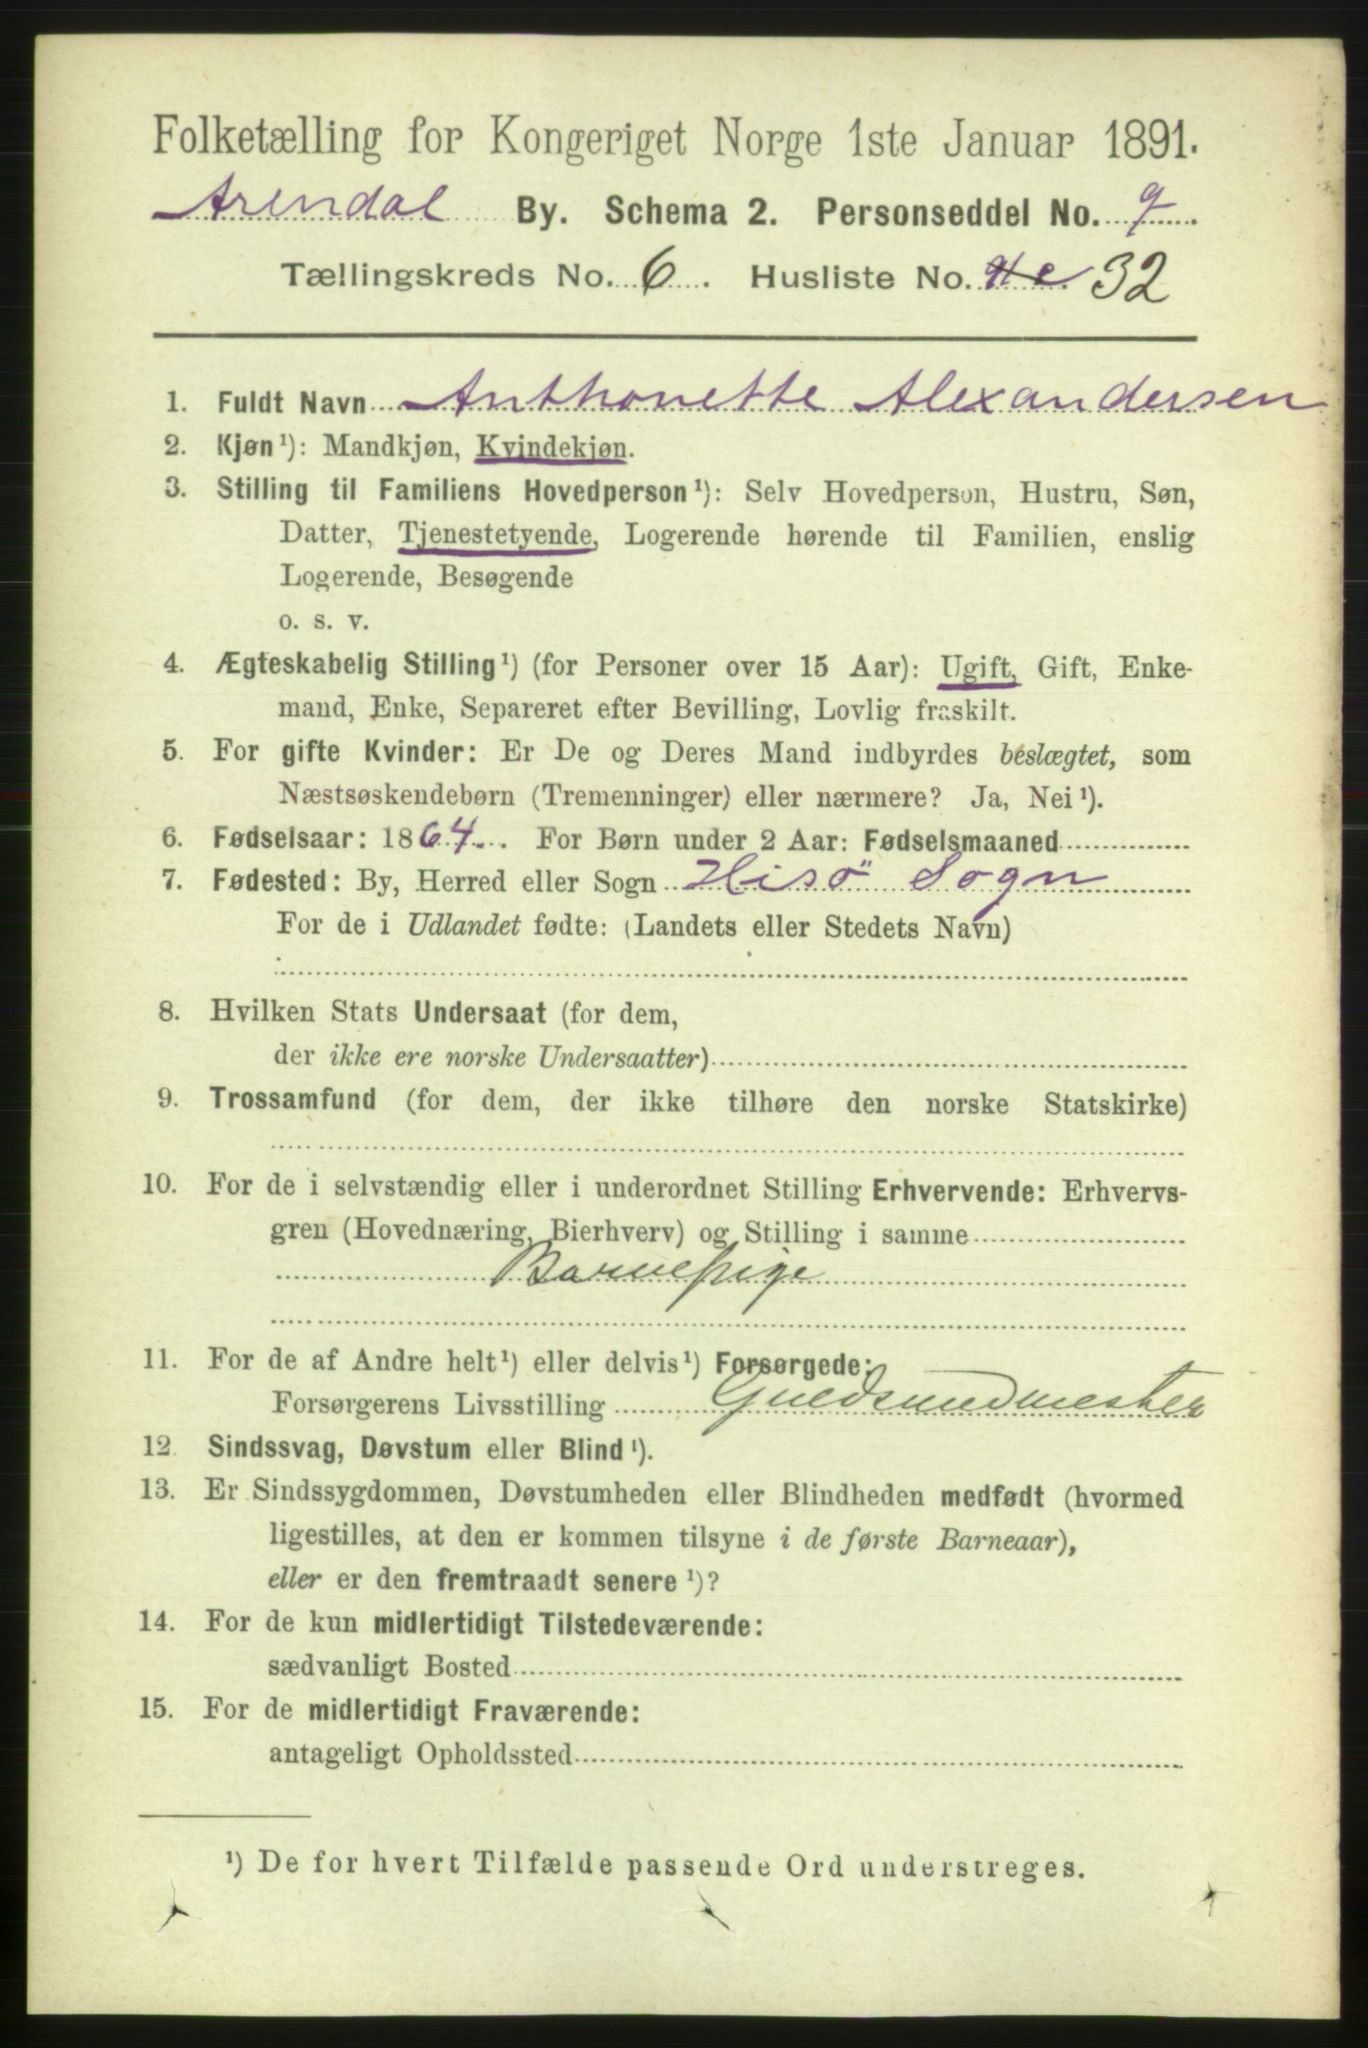 Folketælling for Kongeriget Norge 1ste Januar 1891.
Arendal By. Schema 2. Personseddel No. 9
Tællingskreds No. 6. Husliste No. 32
1. Fuldt Navn Anthonette Alexandersen
2. Kjøn¹): Mandkjøn, Kvindekjøn.
3. Stilling til Familiens Hovedperson¹): Selv Hovedperson, Hustru, Søn,
Datter, Tjenestetyende, Logerende hørende til Familien, enslig
Logerende, Besøgende
o. s. v.
4. Ægteskabelig Stilling¹) (for Personer over 15 Aar): Ugift, Gift, Enke-
mand, Enke, Separeret efter Bevilling, Lovlig fraskilt.
5. For gifte Kvinder: Er De og Deres Mand indbyrdes beslægtet, som
Næstsøskendebørn (Tremenninger) eller nærmere? Ja, Nei¹).
6. Fødselsaar: 1864. For Børn under 2 Aar: Fødselsmaaned
7. Fødested: By, Herred eller Sogn Hisö Sogn
For de i Udlandet fødte: (Landets eller Stedets Navn)
8. Hvilken Stats Undersaat (for dem,
der ikke ere norske Undersaatter)
9. Trossamfund (for dem, der ikke tilhøre den norske Statskirke)
10. For de i selvstændig eller i underordnet Stilling Erhvervende: Erhvervs-
gren (Hovednæring, Bierhverv) og Stilling i samme
Barnepige
11. For de af Andre helt¹) eller delvis¹) Forsørgede:
Forsørgerens Livsstilling
12. Sindssvag, Døvstum eller Blind¹).
13. Er Sindssygdommen, Døvstumheden eller Blindheden medfødt (hvormed
ligestilles, at den er kommen tilsyne i de første Barneaar),
eller er den fremtraadt senere¹)?
14. For de kun midlertidigt Tilstedeværende:
sædvanligt Bosted
15. For de midlertidigt Fraværende:
antageligt Opholdssted
¹) De for hvert Tilfælde passende Ord understreges.